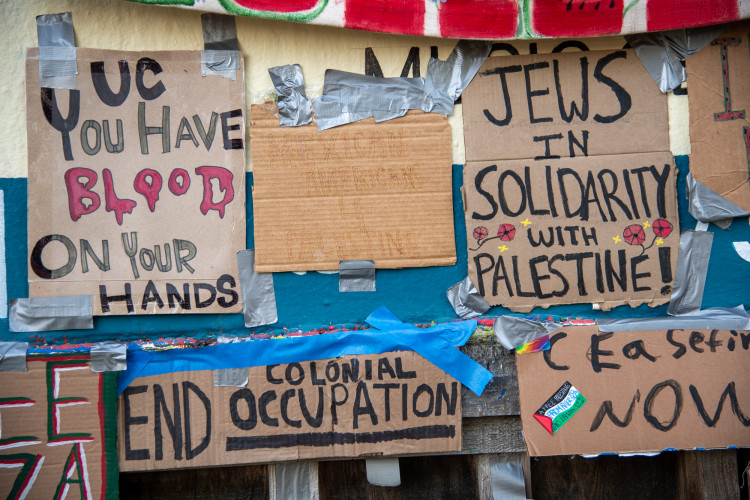 YUC
YOU HAVE
BLOOD
ON YOUR
HANDS
MEXICAN
AMERICAN
JEWS
IN
SOLIDARITY
WITH
PALESTINE!
END COLONIAL
OCCUPATION
CEaSefir
NOW